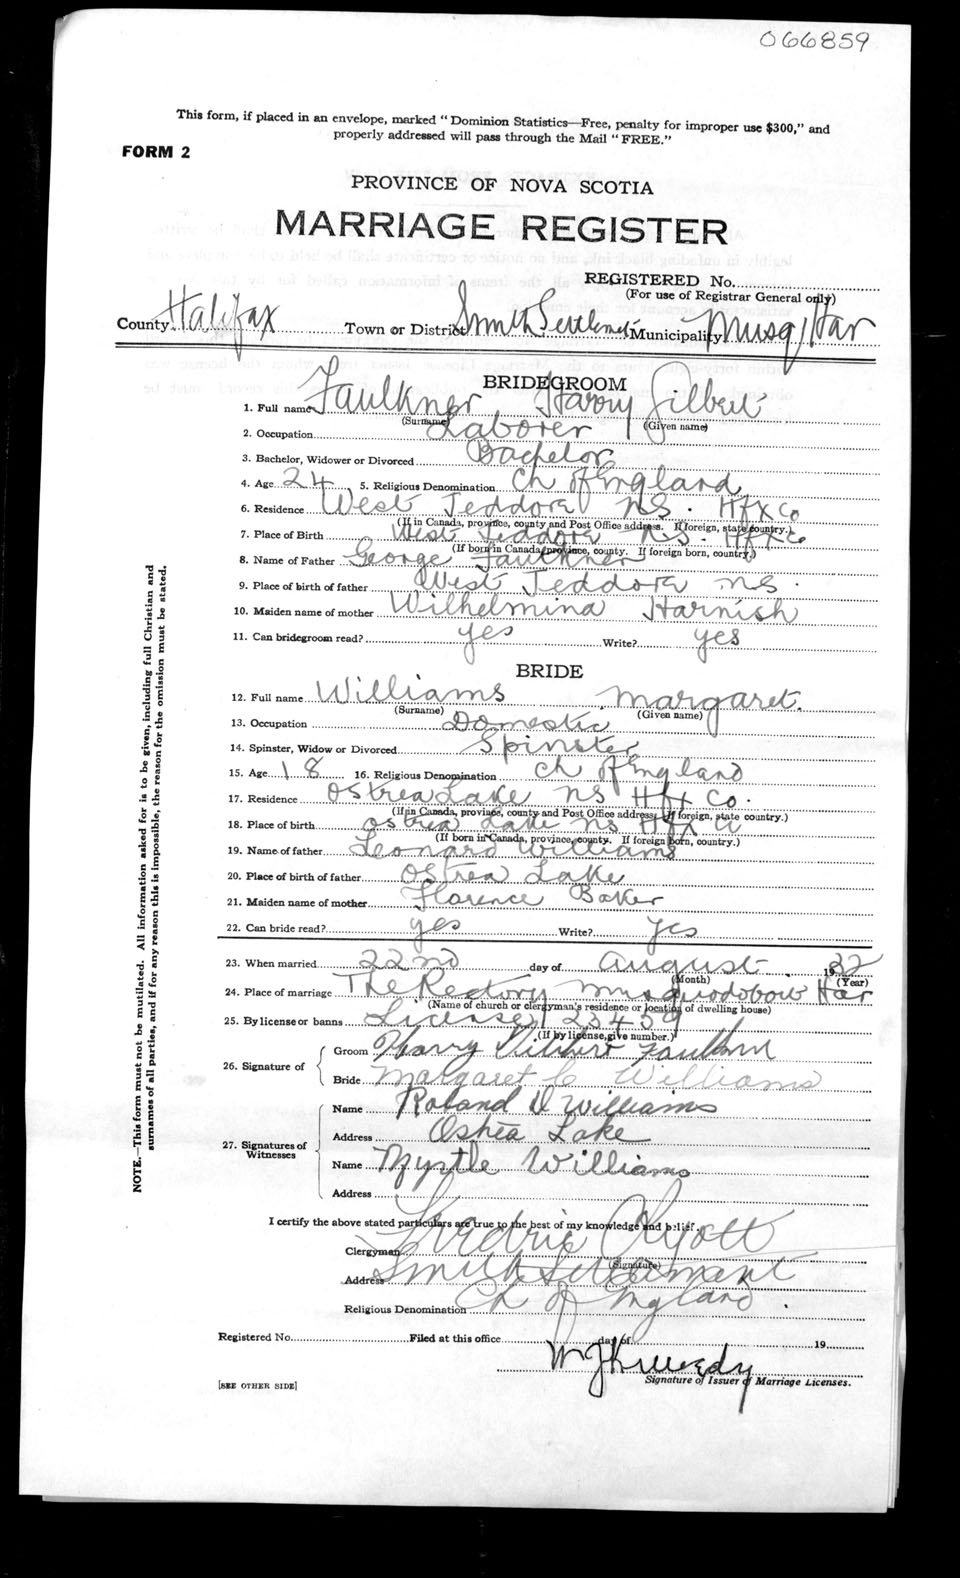 066859
This form, if placed in an envelope, marked "Dominion Statistics—Free, penalty for improper use $300," and
properly addressed will pass through the Mail "FREE."
FORM 2
PROVINCE OF NOVA SCOTIA
MARRIAGE REGISTER
REGISTERED No.
(For use of Registrar General only)
County Halifax Town or District Smith Settlement Municipality Musq Har
BRIDEGROOM
1. Full name Faulkner Harry Gilbert
(Surname) (Given name)
2. Occupation Laborer
3. Bachelor, Widower or Divorced Bachelor
4. Age 24 5. Religious Denomination Ch of England
6. Residence West Jeddore NS. Hfx Co
(If in Canada, province, county and Post Office address. If foreign, state country.)
7. Place of Birth West Jeddore NS. Hfx Co
(If born in Canada, province, county. If foreign born, country.)
8. Name of Father George Faulkner
9. Place of birth of father West Jeddore NS.
10. Maiden name of mother Wilhelmina Harnish
11. Can bridegroom read? yes Write? yes
BRIDE
12. Full name Williams Margaret.
(Surname) (Given name)
13. Occupation Domestic
14. Spinster, Widow or Divorced Spinster
15. Age 18 16. Religious Denomination Ch of England
17. Residence Ostrea Lake NS Hfx Co.
(If in Canada, province, county and Post Office address; If foreign, state country.)
18. Place of birth Ostrea Lake NS Hfx Co
(If born in Canada, province, county. If foreign born, country.)
19. Name of father Leonard Williams
20. Place of birth of father Ostrea Lake
21. Maiden name of mother Florence Baker
22. Can bride read? yes Write? yes
23. When married 22nd day of August 1932
(Month) (Year)
24. Place of marriage The Rectory Musquodoboit Har
(Name of church or clergyman's residence or location of dwelling house)
25. By license or banns License 23459
(If by license, give number.)
26. Signature of Groom Harry Gilbert Faulkner
Bride Margaret C Williams
27. Signatures of Witnesses Name Roland D Williams
Address Ostrea Lake
Name Myrtle Williams
Address
I certify the above stated particulars are true to the best of my knowledge and belief.
Clergyman Fredric
(Signature)
Address Smith Settlement
Religious Denomination Ch of England.
Registered No. Filed at this office day of 19
W J Kennedy
Signature of Issuer of Marriage Licenses.
[SEE OTHER SIDE]
NOTE.—This form must not be mutilated. All information asked for is to be given, including full Christian and
surnames of all parties, and if for any reason this is impossible, the reason for the omission must be stated.